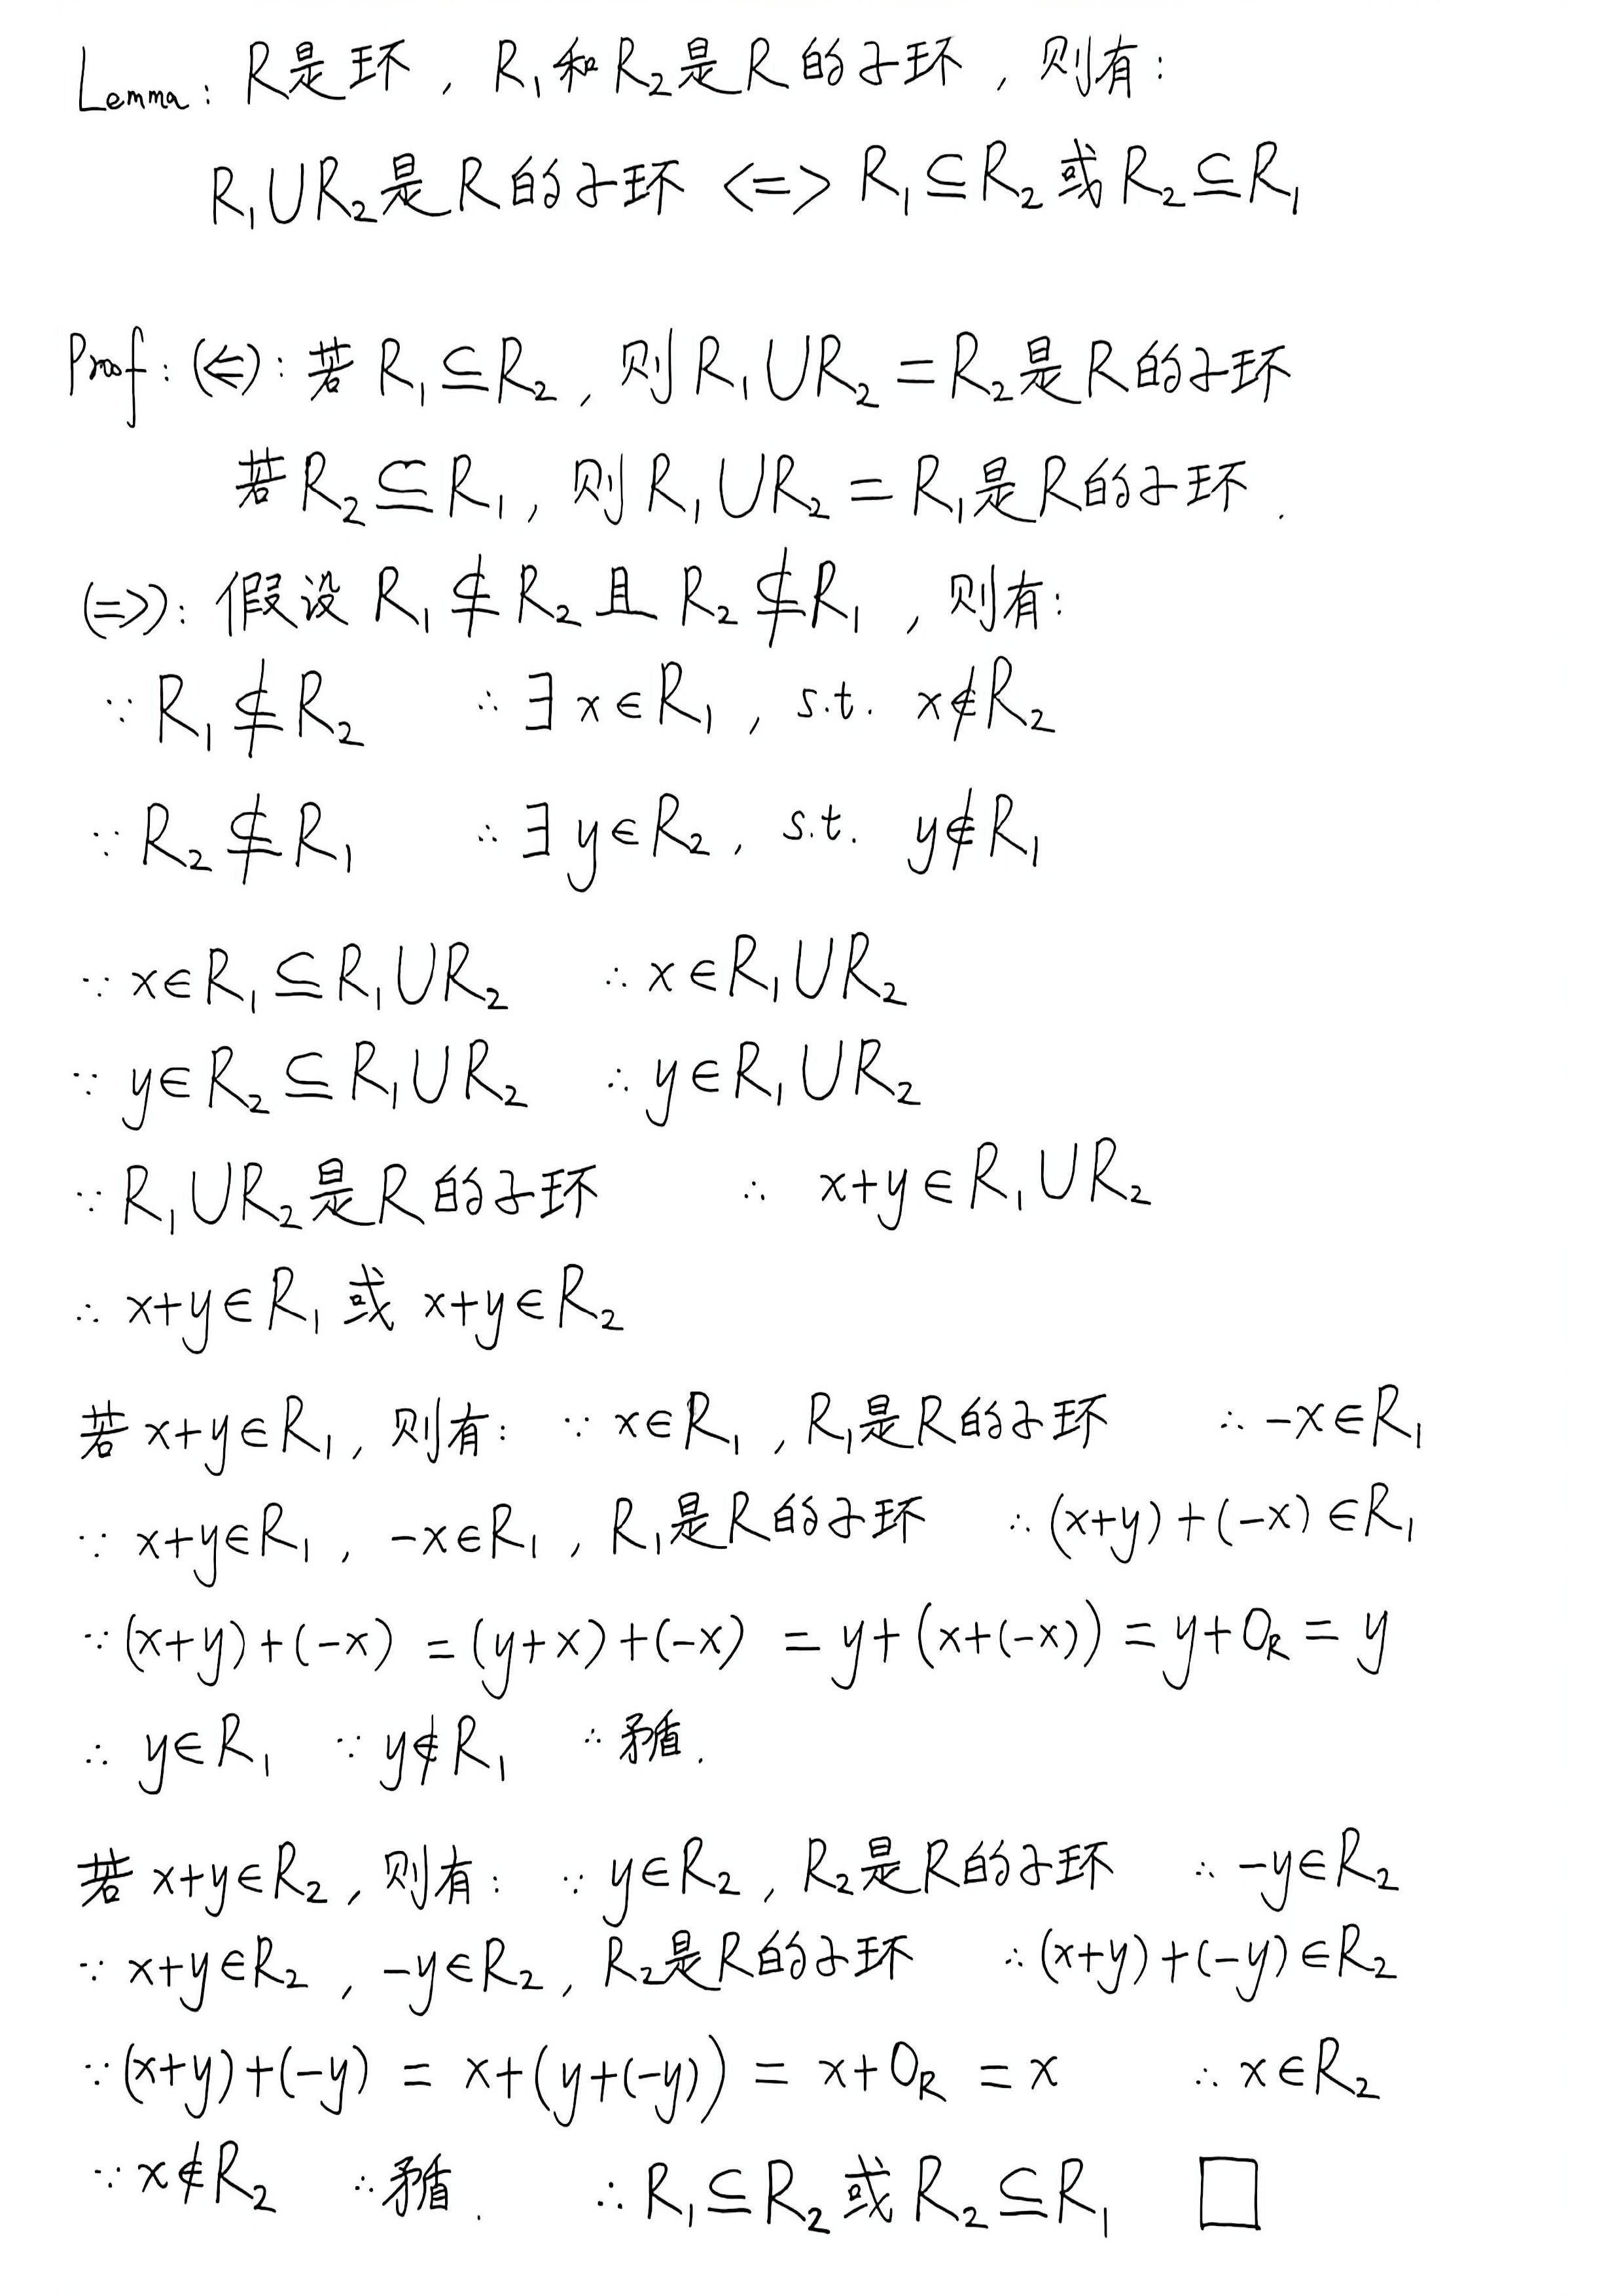 Lemma: R是环, R₁和R₂是R的子环, 则有:
R₁∪R₂是R的子环 <=> R₁⊆R₂或R₂⊆R₁
Proof: (⇐): 若R₁⊆R₂, 则R₁∪R₂=R₂是R的子环
若R₂⊆R₁, 则R₁∪R₂=R₁是R的子环.
(=>): 假设R₁⊈R₂且R₂⊈R₁, 则有:
∵R₁⊈R₂ ∴∃x∈R₁, s.t. x∉R₂
∵R₂⊈R₁ ∴∃y∈R₂, s.t. y∉R₁
∵x∈R₁⊆R₁∪R₂ ∴x∈R₁∪R₂
∵y∈R₂⊆R₁∪R₂ ∴y∈R₁∪R₂
∵R₁∪R₂是R的子环 ∴x+y∈R₁∪R₂
∴x+y∈R₁或x+y∈R₂
若x+y∈R₁, 则有: ∵x∈R₁, R₁是R的子环 ∴-x∈R₁
∵x+y∈R₁, -x∈R₁, R₁是R的子环 ∴(x+y)+(-x)∈R₁
∵(x+y)+(-x)=(y+x)+(-x)=y+(x+(-x))=y+0_R=y
∴y∈R₁ ∵y∉R₁ ∴矛盾.
若x+y∈R₂, 则有: ∵y∈R₂, R₂是R的子环 ∴-y∈R₂
∵x+y∈R₂, -y∈R₂, R₂是R的子环 ∴(x+y)+(-y)∈R₂
∵(x+y)+(-y)=x+(y+(-y))=x+0_R=x ∴x∈R₂
∵x∉R₂ ∴矛盾. ∴R₁⊆R₂或R₂⊆R₁ □